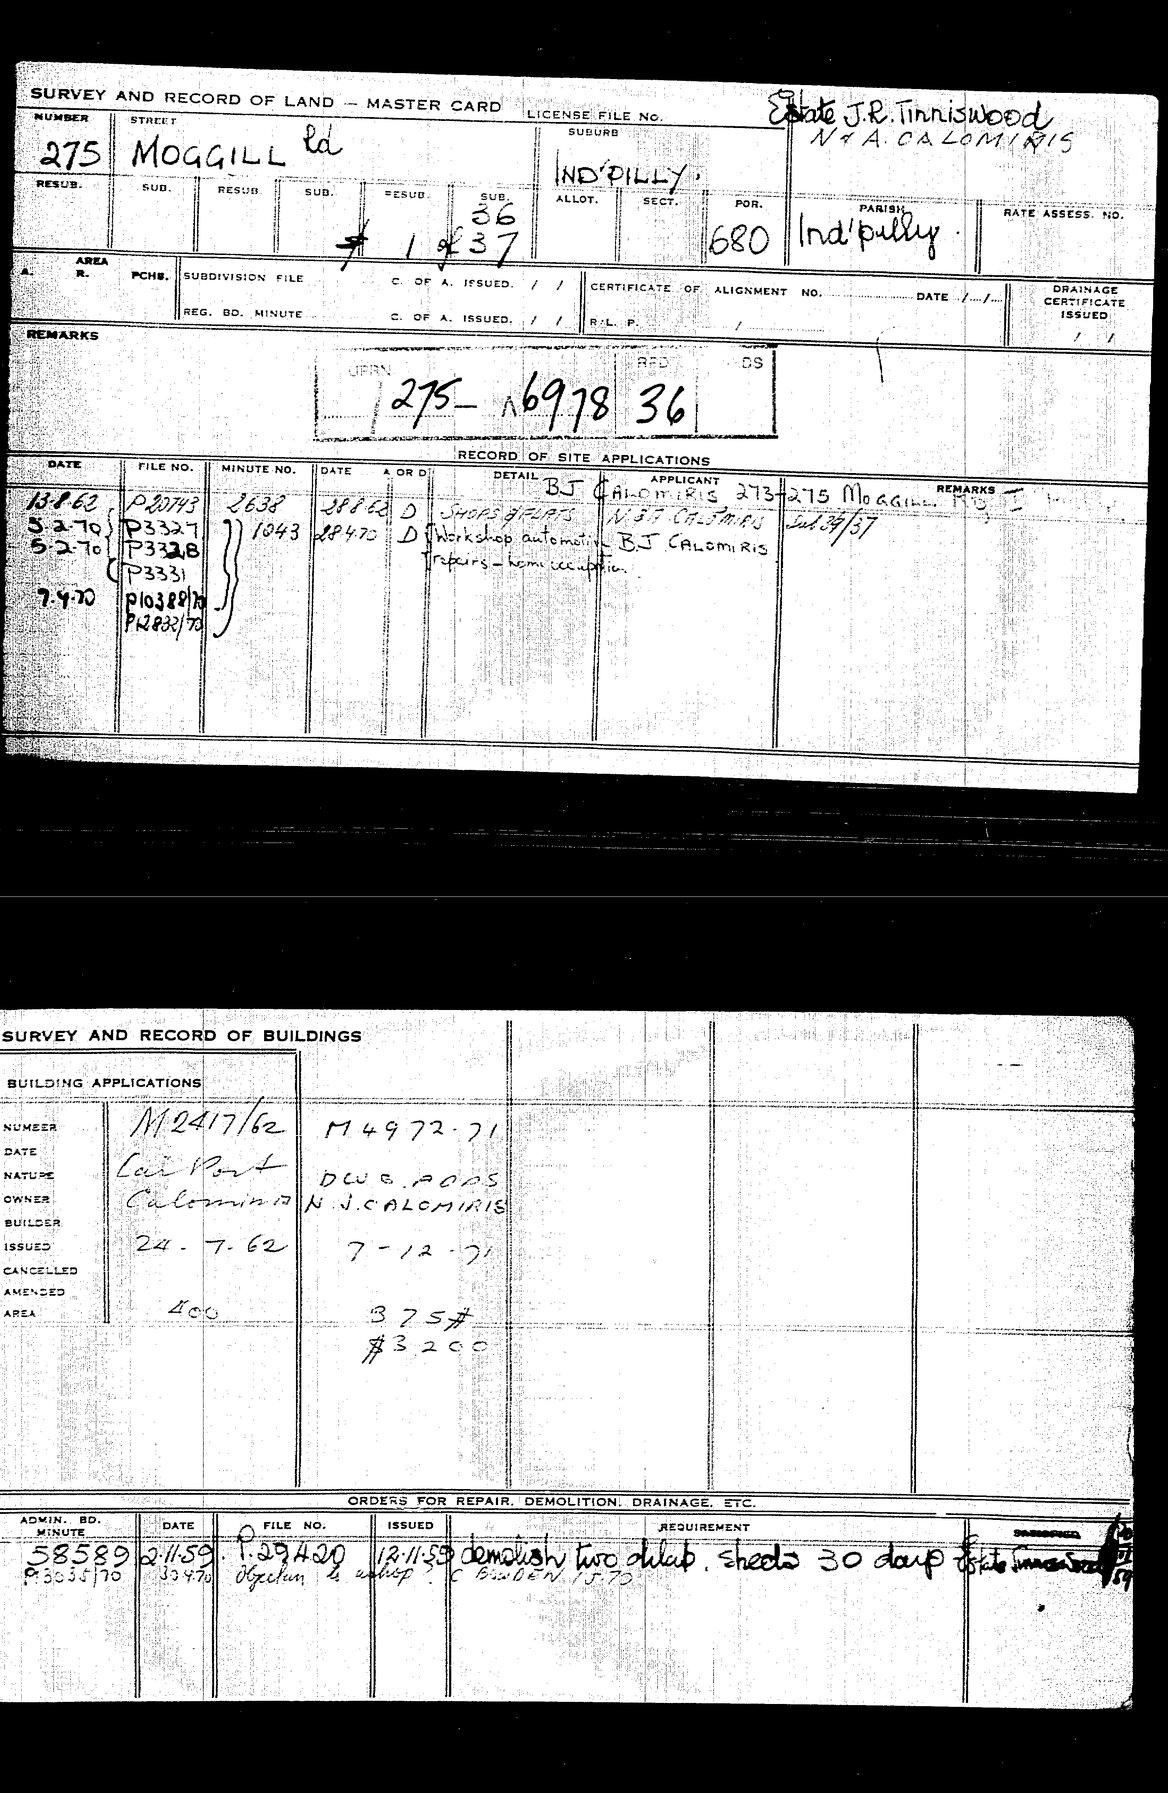 SURVEY AND RECORD OF LAND — MASTER CARD
LICENSE FILE No.
Estate J.R. Tinniswood
N & A. CALOMIRIS
NUMBER STREET SUBURB
275 MOGGILL Rd IND'PILLY.
RESUB. SUB. RESUB. SUB. RESUB. SUB. ALLOT. SECT. POR. PARISH RATE ASSESS. NO.
36
1 of 37 680 Ind'pilly.
AREA
A. R. PCHS. SUBDIVISION FILE C. OF A. ISSUED. / / CERTIFICATE OF ALIGNMENT NO. DATE / / DRAINAGE CERTIFICATE ISSUED
REG. BD. MINUTE C. OF A. ISSUED. / / R.L. P. / / /
REMARKS
UPRN RFD DS
275— 6978 36
RECORD OF SITE APPLICATIONS
DATE FILE NO. MINUTE NO. DATE A OR D DETAIL APPLICANT REMARKS
BJ CALOMIRIS 273-275 MOGGILL RD
13-8-62 P20743 2638 28 8 62 D SHOPS & FLATS N & A CALOMIRIS
5-2-70 P3327 1043 28 4 70 D Workshop automotive B J CALOMIRIS
5-2-70 P3328 repairs – home occupation.
P3331
7.4.70 P10388/70
P12832/70
SURVEY AND RECORD OF BUILDINGS
BUILDING APPLICATIONS
NUMBER M2417/62 M4972.71
DATE
NATURE Car Port DWG. ADDS
OWNER Calomiris N. J. CALOMIRIS
BUILDER
ISSUED 24-7-62 7-12-71
CANCELLED
AMENDED
AREA 400 375#
$3200
ORDERS FOR REPAIR, DEMOLITION, DRAINAGE, ETC.
ADMIN. BD. MINUTE DATE FILE NO. ISSUED REQUIREMENT SATISFIED
58589 2-11-59 P.29420 12-11-59 demolish two dilap. sheds 30 days Estate Tinniswood
P.3035/70 30 4 70 Objection to